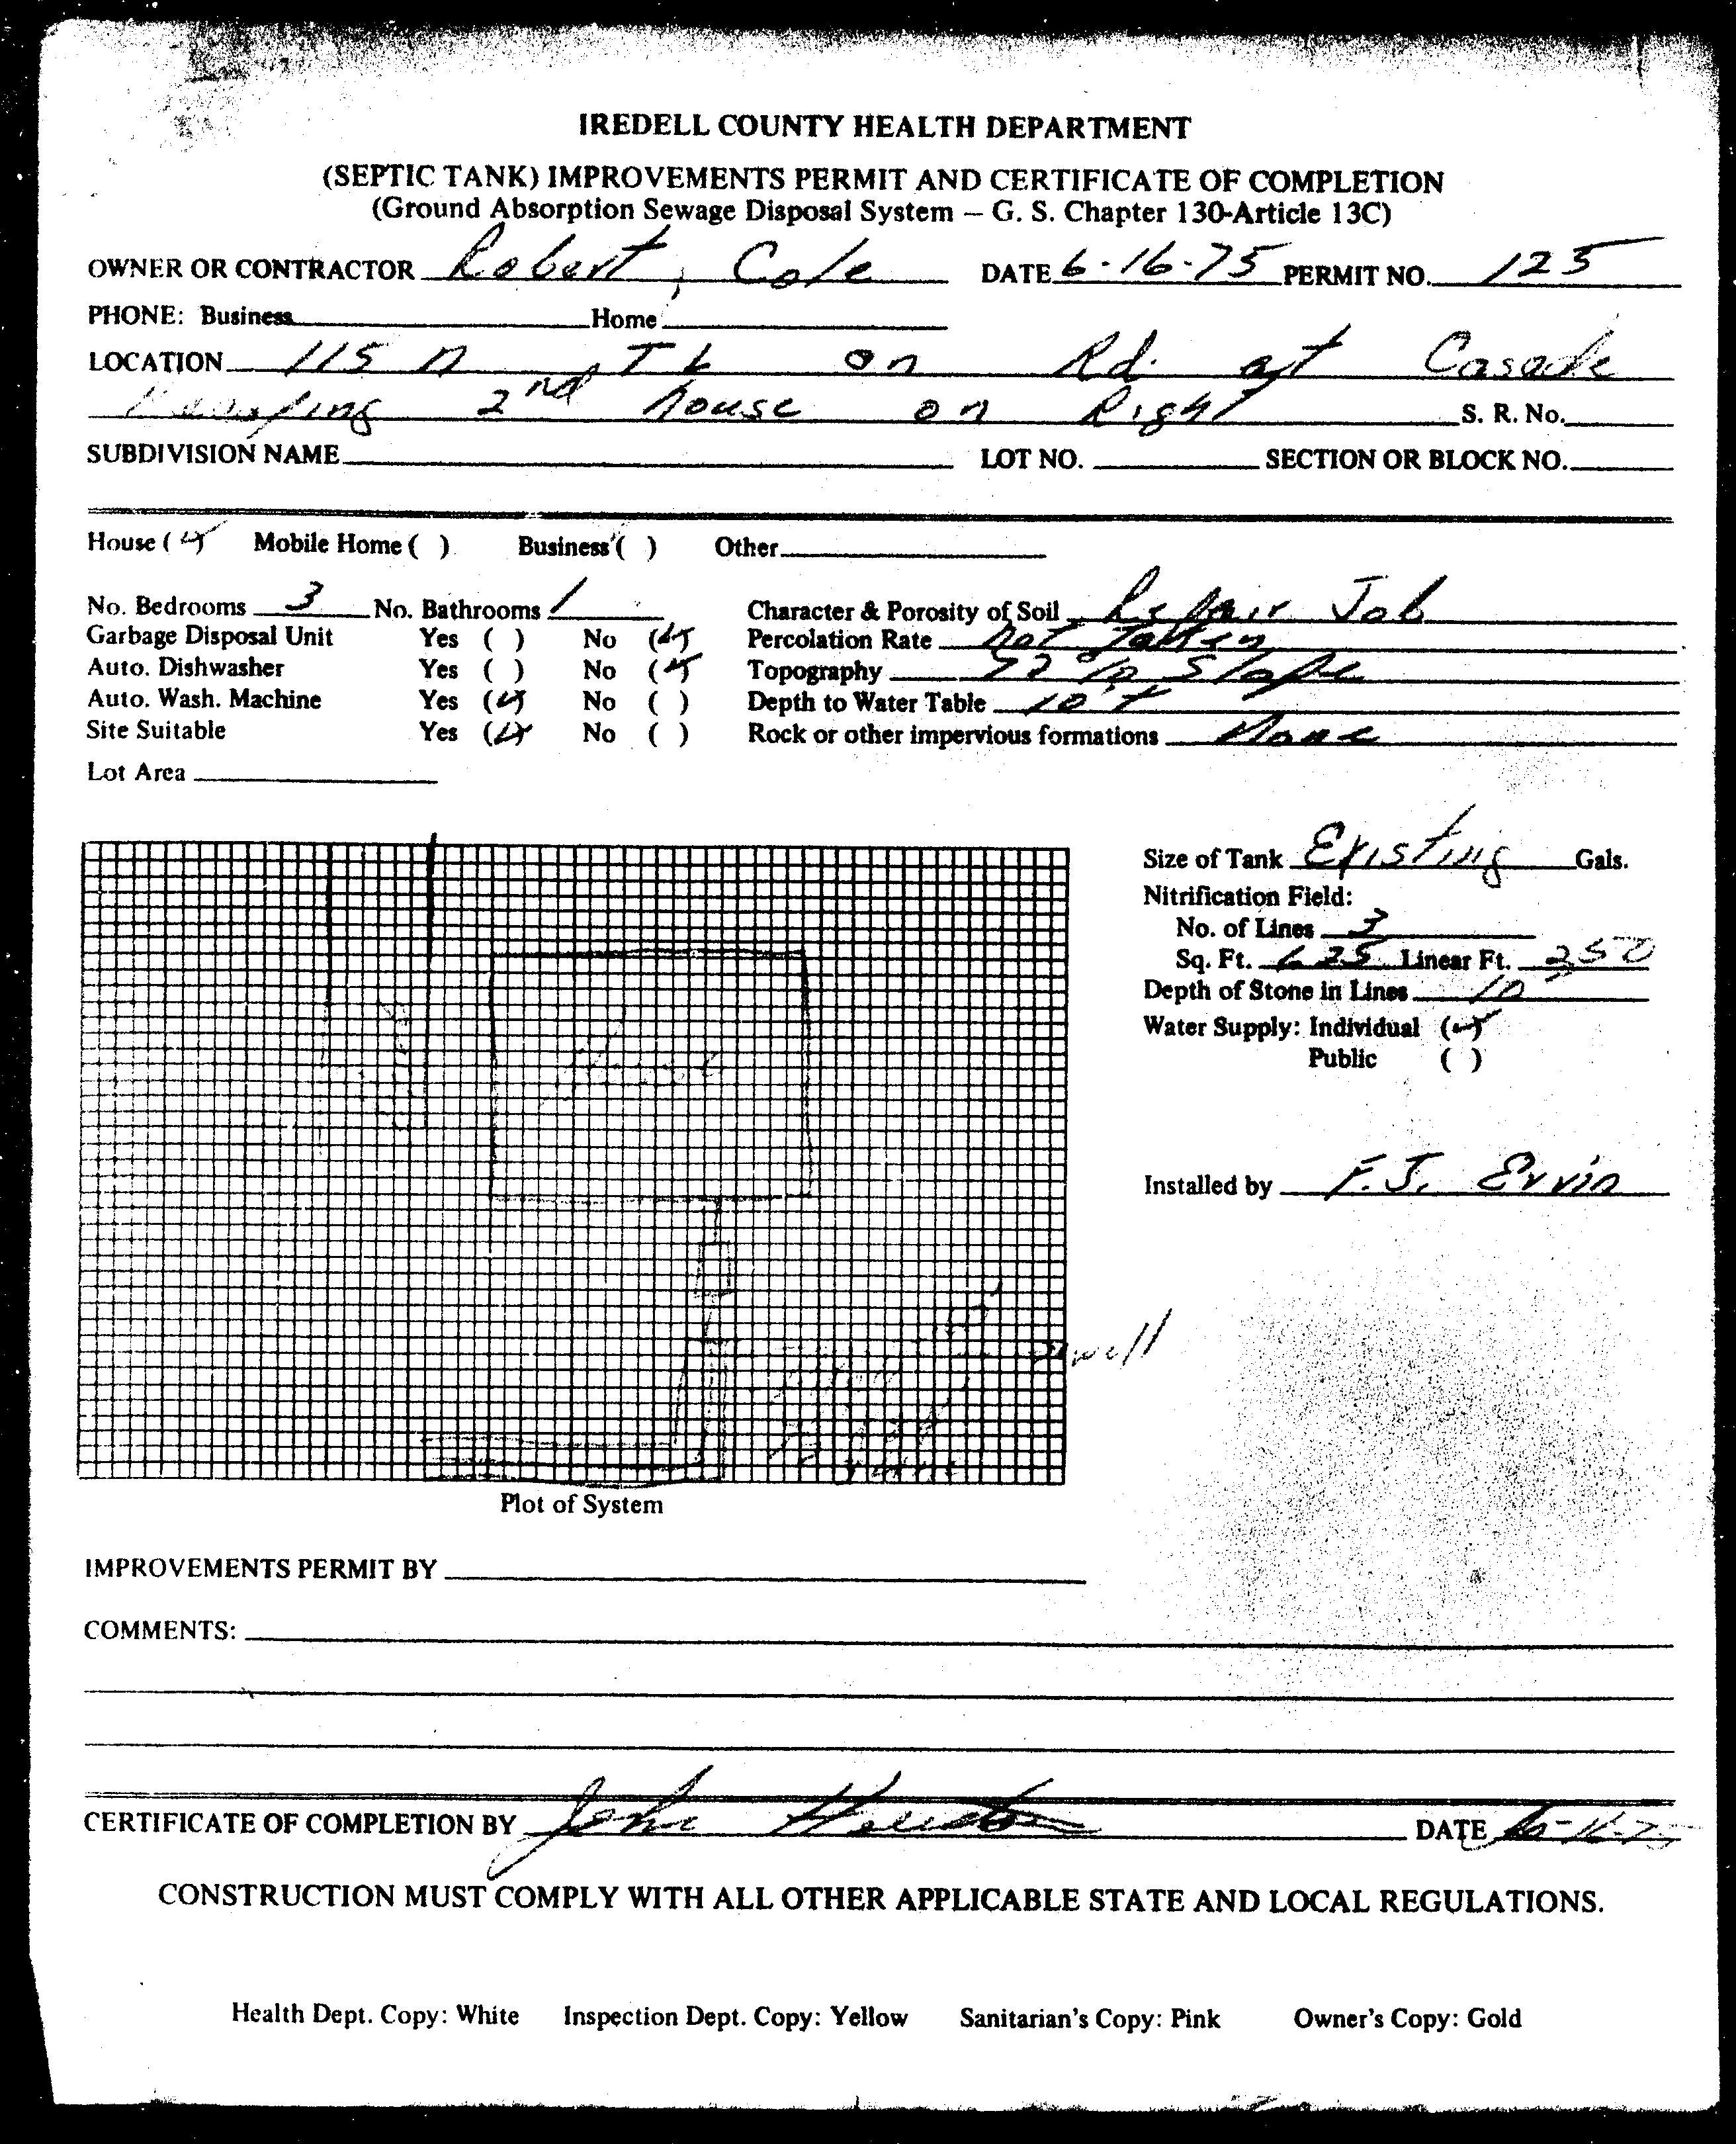 IREDELL COUNTY HEALTH DEPARTMENT
(SEPTIC TANK) IMPROVEMENTS PERMIT AND CERTIFICATE OF COMPLETION
(Ground Absorption Sewage Disposal System – G. S. Chapter 130-Article 13C)
OWNER OR CONTRACTOR Robert Cole DATE 6-16-75 PERMIT NO. 125
PHONE: Business Home
LOCATION 115 N T L on Rd. at Casade
2nd house on Right S. R. No.
SUBDIVISION NAME LOT NO. SECTION OR BLOCK NO.
House (✓) Mobile Home ( ) Business ( ) Other
No. Bedrooms 3 No. Bathrooms 1 Character & Porosity of Soil Repair Job
Garbage Disposal Unit Yes ( ) No (✓) Percolation Rate not Taken
Auto. Dishwasher Yes ( ) No (✓) Topography % Slope
Auto. Wash. Machine Yes (✓) No ( ) Depth to Water Table 10'+
Site Suitable Yes (✓) No ( ) Rock or other impervious formations None
Lot Area
Size of Tank Existing Gals.
Nitrification Field:
No. of Lines 3
Sq. Ft. 625 Linear Ft. 250
Depth of Stone in Lines 10
Water Supply: Individual (✓)
Public ( )
Installed by F.J. Ervin
well
Plot of System
IMPROVEMENTS PERMIT BY
COMMENTS:
CERTIFICATE OF COMPLETION BY John Houston DATE 6-16-75
CONSTRUCTION MUST COMPLY WITH ALL OTHER APPLICABLE STATE AND LOCAL REGULATIONS.
Health Dept. Copy: White Inspection Dept. Copy: Yellow Sanitarian's Copy: Pink Owner's Copy: Gold